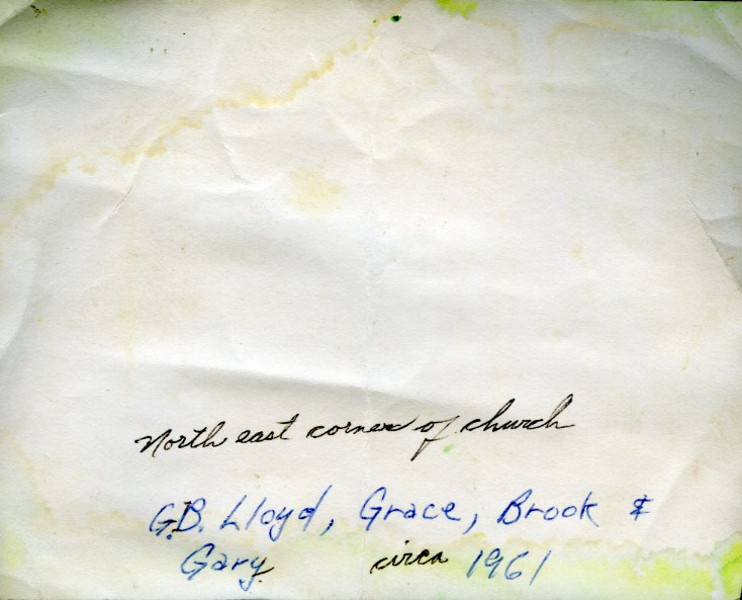 North east corner of church
G.B. Lloyd, Grace, Brook &
Gary circa 1961